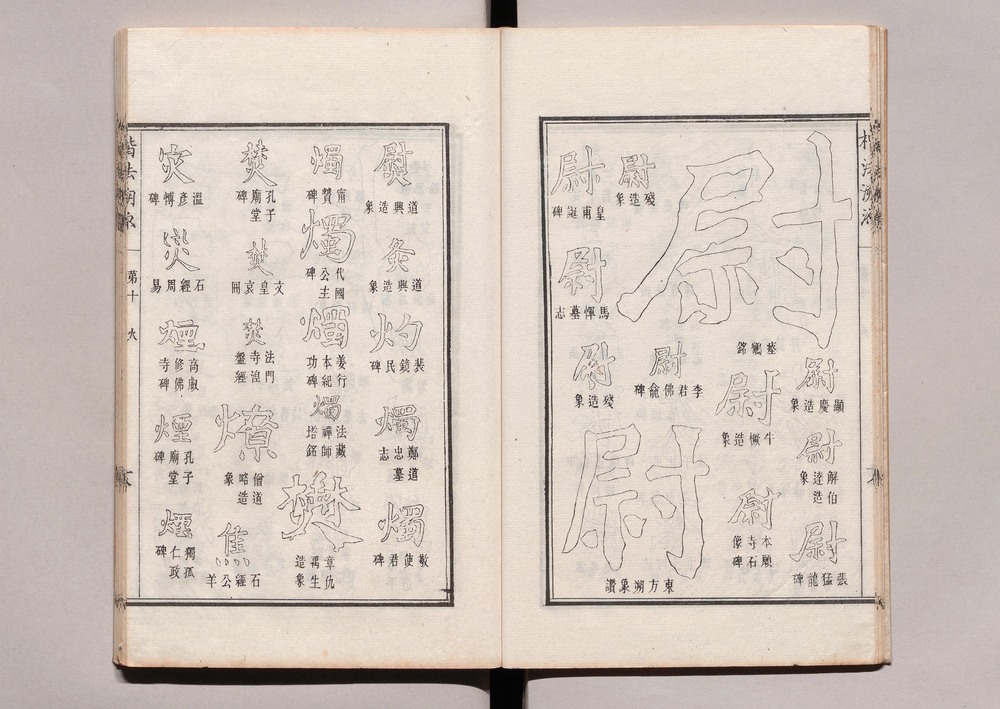 尉
瘞鶴銘
尉
顯慶造象
尉
解伯達造象
尉
張猛龍碑
尉
牛橛造象
尉
本願寺石像碑
尉
殘造象
尉
李君佛龕碑
尉
東方朔象讚
尉
皇甫誕碑
尉
馬惲墓志
尉
殘造象
尉
道興造象
灸
道興造象
灼
裴鏡民碑
燭
鄭道忠墓志
燭
敬使君碑
燭
甯贊碑
燭
代國公主碑
燭
姜行本紀功碑
燭
法藏禪師塔銘
章仇禹生造象
焚
孔子廟堂碑
焚
文皇哀冊
焚
法門寺湼盤經
燎
僧道略造象
焦
石經公羊
灾
溫彥博碑
災
石經周易
煙
高叡修佛寺碑
煙
孔子廟堂碑
煙
獨孤仁政碑
楷法溯原 第十 火